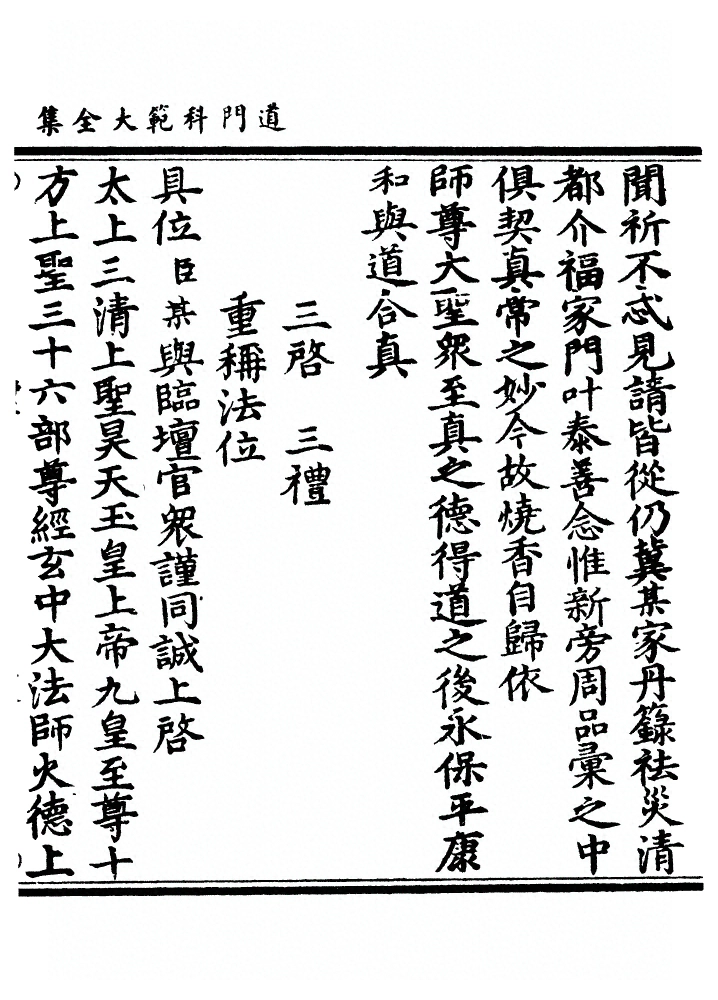 道門科範大全集
聞祈不忒見請皆從仍冀某家丹籙祛災清
都介福家門叶泰善念惟新旁周品彙之中
俱契真常之妙今故燒香自歸依
師尊大聖眾至真之德得道之後永保平康
和與道合真
三啓　三禮
重稱法位
具位臣某與臨壇官眾謹同誠上啓
太上三清上聖昊天玉皇上帝九皇至尊十
方上聖三十六部尊經玄中大法師火德上